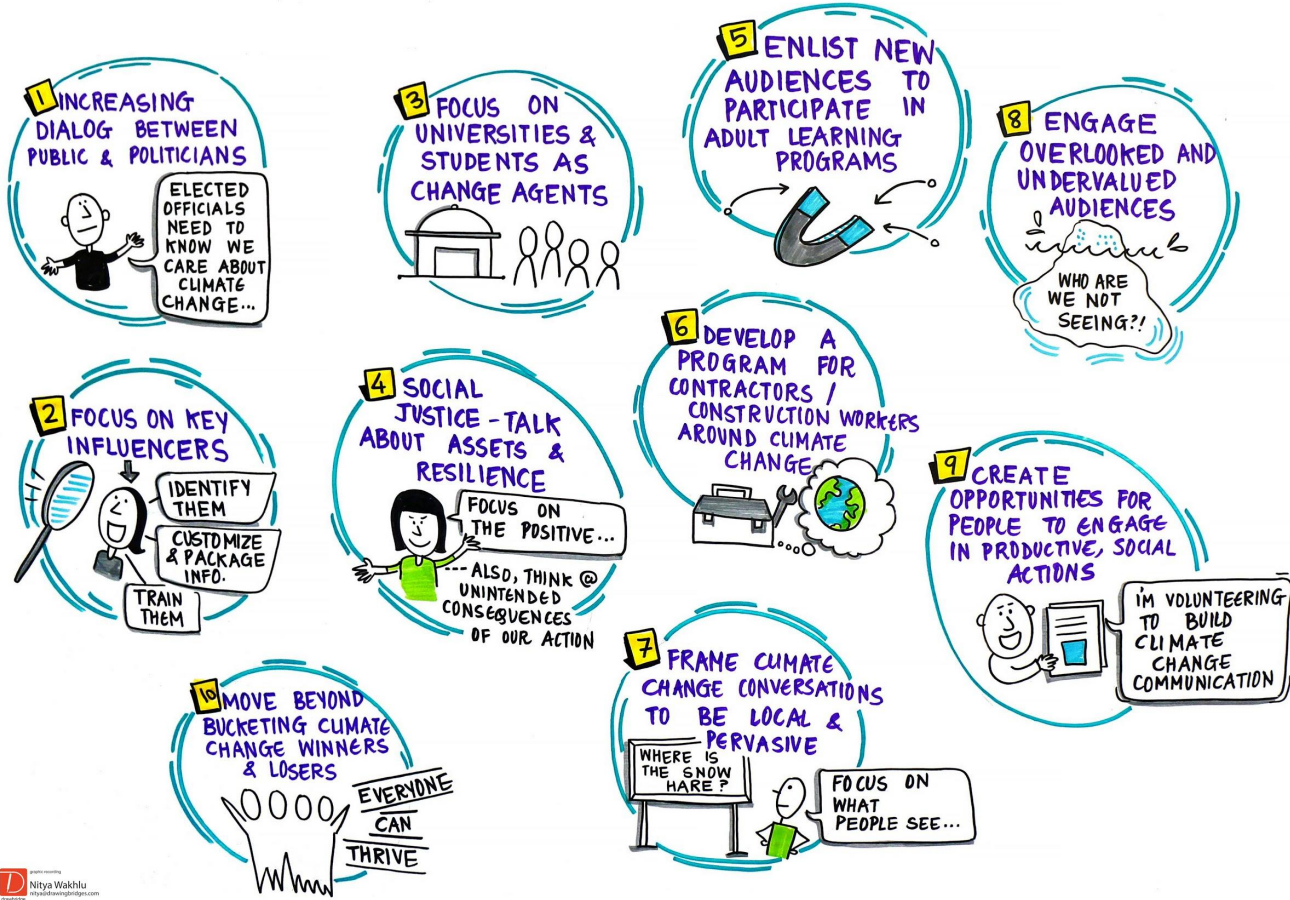 1 INCREASING
DIALOG BETWEEN
PUBLIC & POLITICIANS
ELECTED
OFFICIALS
NEED TO
KNOW WE
CARE ABOUT
CLIMATE
CHANGE...
2 FOCUS ON KEY
INFLUENCERS
IDENTIFY
THEM
CUSTOMIZE
& PACKAGE
INFO.
TRAIN
THEM
3 FOCUS ON
UNIVERSITIES &
STUDENTS AS
CHANGE AGENTS
4 SOCIAL
JUSTICE - TALK
ABOUT ASSETS &
RESILIENCE
FOCUS ON
THE POSITIVE...
ALSO, THINK @
UNINTENDED
CONSEQUENCES
OF OUR ACTION
5 ENLIST NEW
AUDIENCES TO
PARTICIPATE IN
ADULT LEARNING
PROGRAMS
6 DEVELOP A
PROGRAM FOR
CONTRACTORS /
CONSTRUCTION WORKERS
AROUND CLIMATE
CHANGE
7 FRAME CLIMATE
CHANGE CONVERSATIONS
TO BE LOCAL &
PERVASIVE
WHERE IS
THE SNOW
HARE?
FOCUS ON
WHAT
PEOPLE SEE...
8 ENGAGE
OVERLOOKED AND
UNDERVALUED
AUDIENCES
WHO ARE
WE NOT
SEEING?!
9 CREATE
OPPORTUNITIES FOR
PEOPLE TO ENGAGE
IN PRODUCTIVE, SOCIAL
ACTIONS
I'M VOLUNTEERING
TO BUILD
CLIMATE
CHANGE
COMMUNICATION
10 MOVE BEYOND
BUCKETING CLIMATE
CHANGE WINNERS
& LOSERS
EVERYONE
CAN
THRIVE
graphic recording
Nitya Wakhlu
nitya@drawingbridges.com
drawbridge